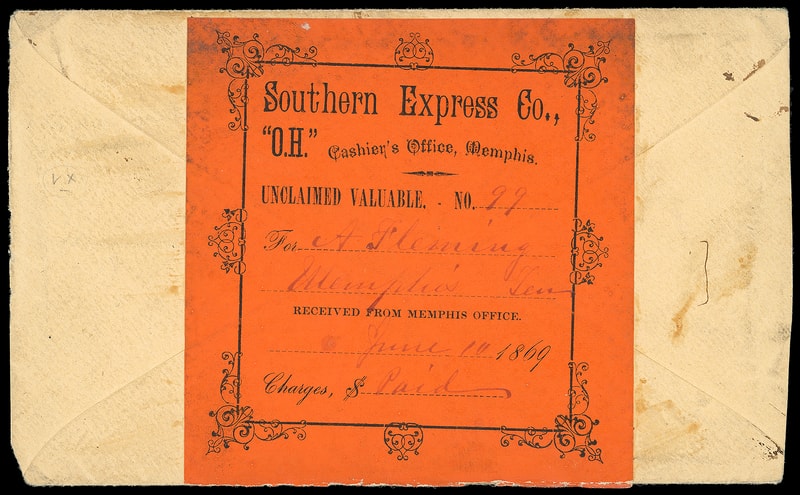 Southern Express Co.,
"O.H." Cashier's Office, Memphis.
UNCLAIMED VALUABLE. - NO. 99
For A Fleming
Memphis Ten
RECEIVED FROM MEMPHIS OFFICE.
June 10 1869
Charges, $ Paid